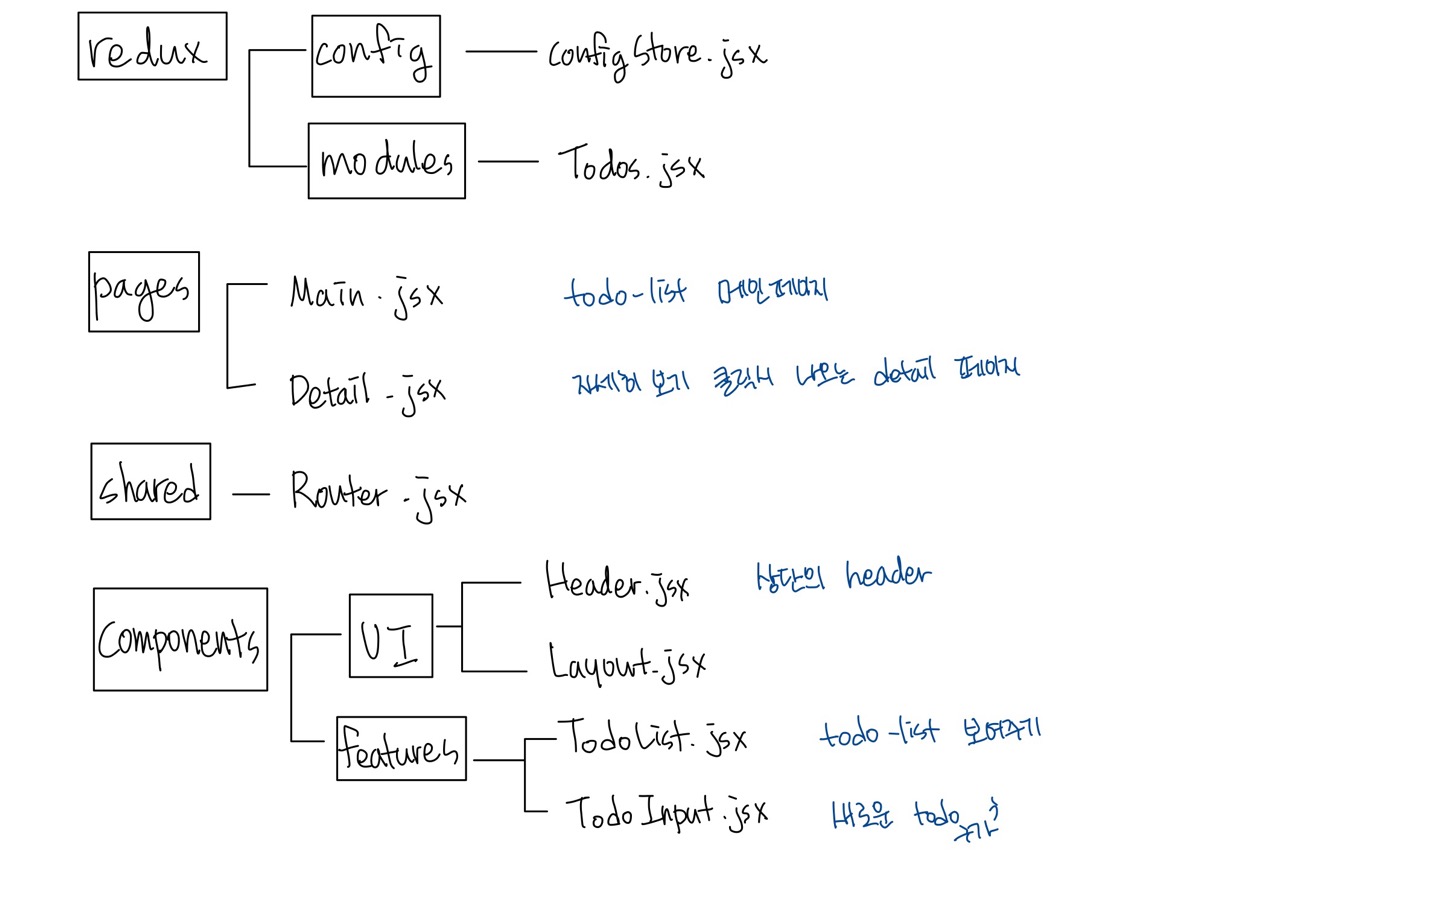 redux config configStore.jsx
modules Todos.jsx
pages Main.jsx todo-list 메인페이지
Detail.jsx 자세히 보기 클릭시 나오는 detail 페이지
shared Router.jsx
Header.jsx 상단의 header
Components UI
Layout.jsx
features TodoList.jsx todo-list 보여주기
TodoInput.jsx 새로운 todo 추가